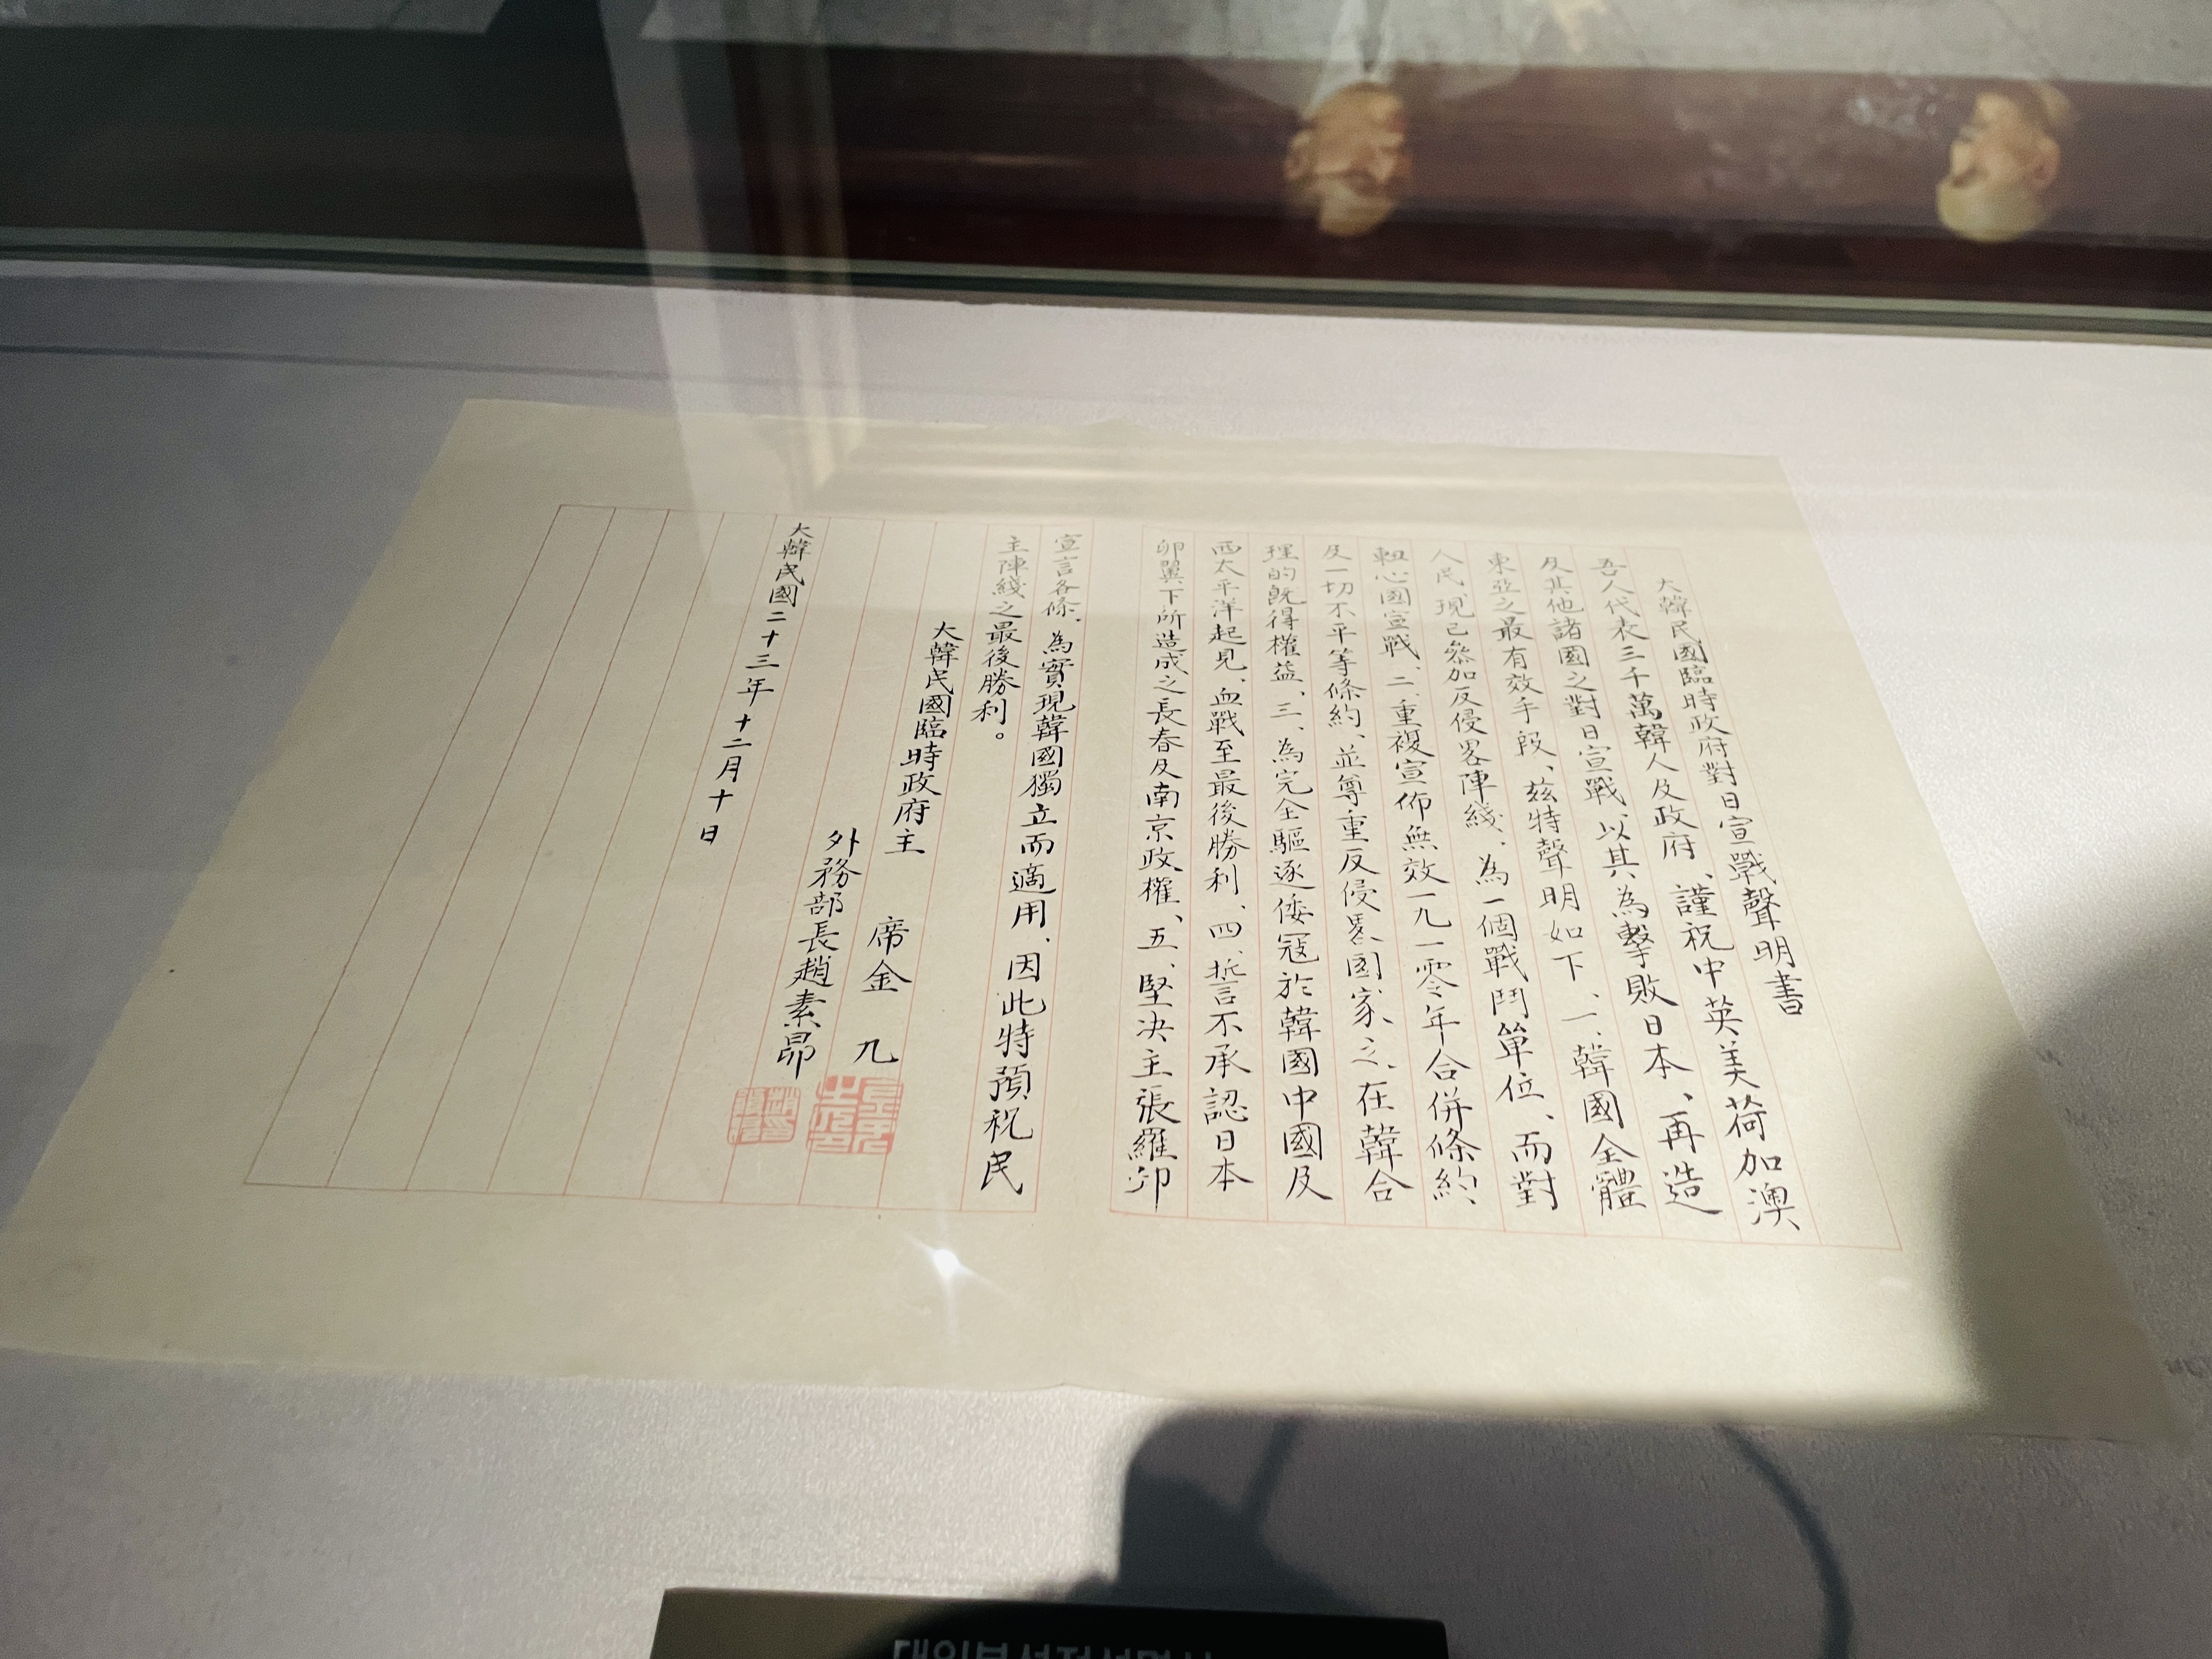 大韓民國臨時政府對日宣戰聲明書
吾人代表三千萬韓人及政府、謹祝中英美荷加澳
及其他諸國之對日宣戰、以其為擊敗日本、再造
東亞之最有效手段、茲特聲明如下、一、韓國全體
人民、現已參加反侵畧陣綫、為一個戰鬥單位、而對
軸心國宣戰、二、重複宣佈無效一九一零年合併條約、
及一切不平等條約、並尊重反侵畧國家之、在韓合
理的既得權益、三、為完全驅逐倭寇於韓國中國及
西太平洋起見、血戰至最後勝利、四、誓不承認日本
卵翼下所造成之長春及南京政權、五、堅决主張羅卯
宣言各條、為實現韓國獨立而適用、因此特預祝民
主陣綫之最後勝利。
大韓民國臨時政府主 席金 九
外務部長趙素昻
大韓民國二十三年十二月十日